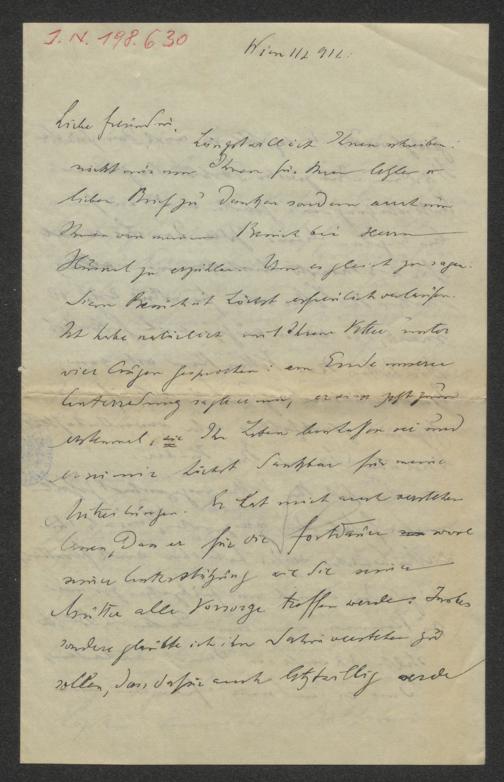 I. N. 198.630
Wien 11/2 912.
Liebe Freundin.
Längst will ich Ihnen schreiben:
nicht nur um Ihnen für Ihren
lieben Brief zu danken sondern auch um
Ihnen von meinem Besuch bei Herrn
Hummel zu erzählen. Um es gleich zu sagen:
dieser Besuch ist höchst erfreulich verlaufen.
Ich habe natürlich mit Ihrem Vetter unter
vier Augen gesprochen: am Ende unserer
Unterredung sagte er mir, er
wie Ihr Leben sei und
er sei mir höchst dankbar für meine
Mitteilungen. Er hat mich auch verstehen
lassen, dass er für die Fortdauer wohl
seiner Unterstützung wie die seiner
Mutter alle Vorsorge treffen werde. Insbes
sondere glaubte ich ihn dahin verstehen zu
sollen, dass dafür auch letztwillig werde